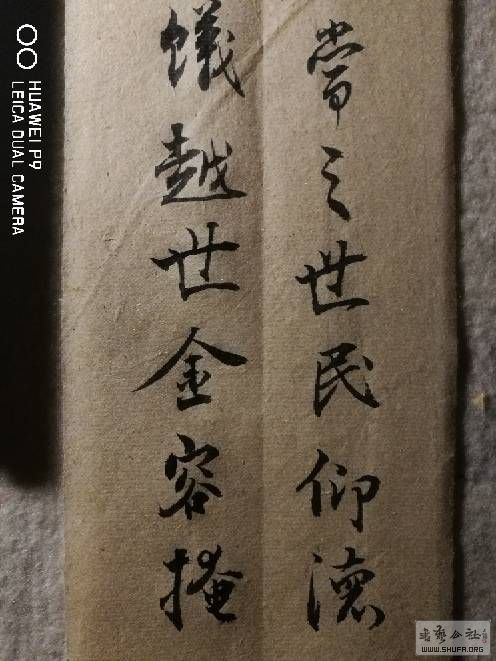 常之世民仰德
儀越世金容掩
HUAWEI P9
LEICA DUAL CAMERA
書藝公社
WWW.SHUFA.ORG